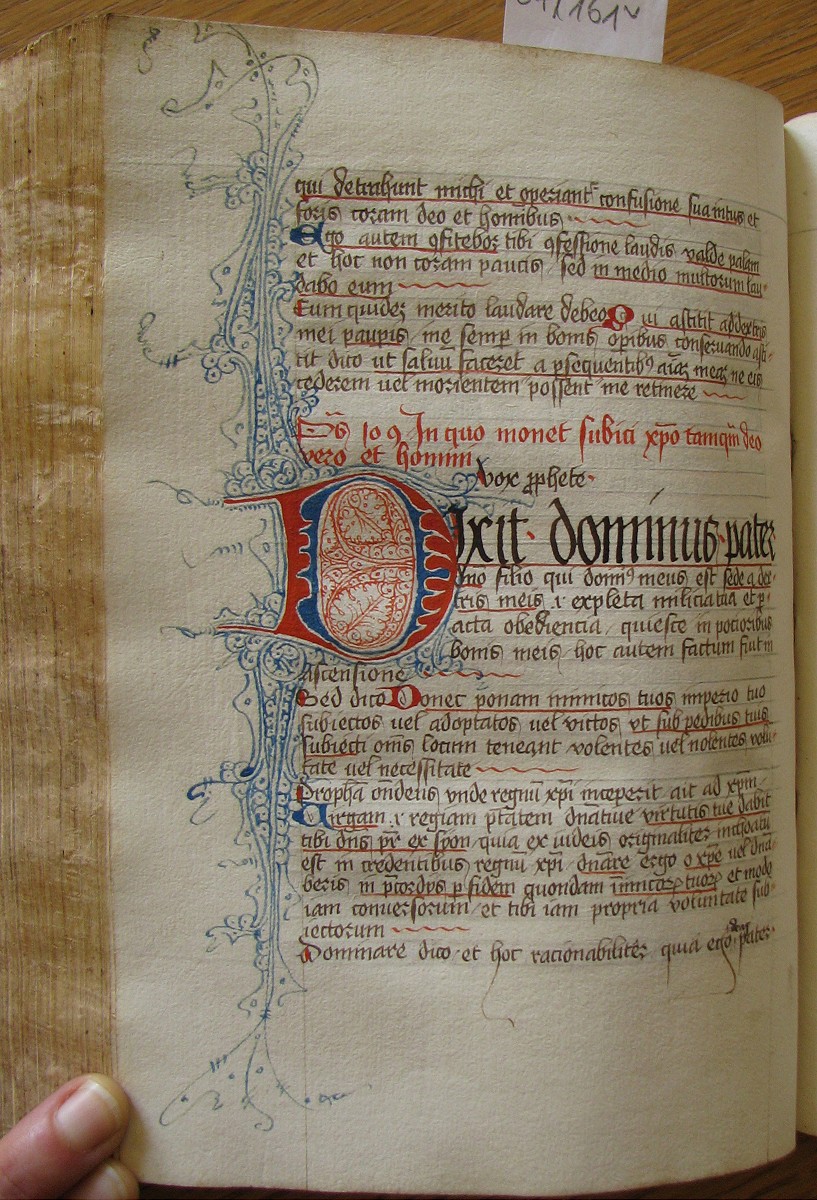 161v
qui detrahunt michi et operiant᷑ confusione sua intus et
foris coram deo et hominibus
Ego autem ꝯfitebor tibi ꝯfessione laudis valde palam
et hoc non coram paucis sed in medio multorum lau-
dabo eum
Eum quidez merito laudare debeo Qui astitit addextris
mei paupis me semp in bonis opibus conseruando asti-
tit dico ut saluu faceret a psequentibꝰ meaz ne eis
cederem uel morientem possent me retinere
Ps 109 In quo monet subici xp̄o tamqm̄ deo
vero et homini
vox pphete
Dixit dominus pater
dn̄o filio qui domiꝰ meus est sede a dex-
tris meis expleta milicia tua et p-
acta obediencia quiesce in pocioribus
bonis meis hoc autem factum fuit in
ascensione
Sed dico Donec ponam inimicos tuos imperio tuo
subiectos uel adoptatos uel victos vt sub pedibus tuis
subiecti om̄s locum teneant volentes uel nolentes volu-
tate uel necessitate
Propha on̄dens vnde regnu xp̄i inceperit ait ad xpm̄
Virgam regiam ptatem virtutis tue dabit
tibi dn̄s pr̄ ex syon quia ex iudeis originaliter
est in credentibus regnu xp̄i dn̄are ergo o xpe uel
beris in p fidem quondam tuoꝝ et modo
iam conuersorum et tibi iam propria voluntate sub-
iectorum
Dominare dico et hoc racionabiliter quia ego pater